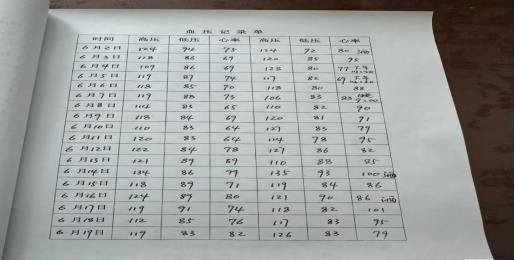 血压记录单
时间 高压 低压 心率 高压 低压 心率
6月2日 124 92 75 124 92 80 酒
6月3日 118 86 69 120 85 95
6月4日 109 86 69 128 80 77 下午
6月5日 119 87 74 117 82 69 下午
6月6日 118 85 70 118 80 88
6月7日 119 88 75 106 83 83
6月8日 114 83 65 110 82 90
6月9日 118 84 69 120 81 91
6月10日 110 83 64 127 83 79
6月11日 120 83 64 114 78 95
6月12日 122 84 78 127 86 82
6月13日 121 89 69 110 88 85
6月14日 134 86 77 135 93 100 酒
6月15日 118 89 71 119 84 86
6月16日 124 89 80 121 90 86 酒
6月17日 119 91 74 118 82 101
6月18日 112 85 76 117 83 95
6月19日 119 83 82 126 83 79